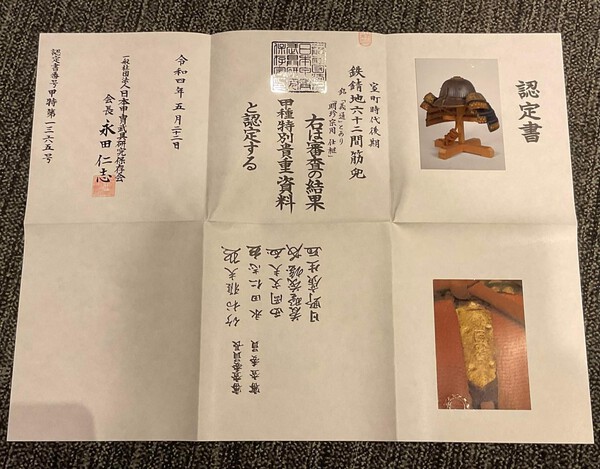 認定書
室町時代後期
鉄錆地六十二間筋兜
銘「義通」とあり
右は審査の結果
甲種特別貴重資料
と認定する
令和四年五月二十二日
一般社団法人日本甲冑武具研究保存会
会長 永田仁志
認定書番号 甲特第一三六五号
審査委員長 竹村雅夫
審査委員 永田仁志
西岡文夫